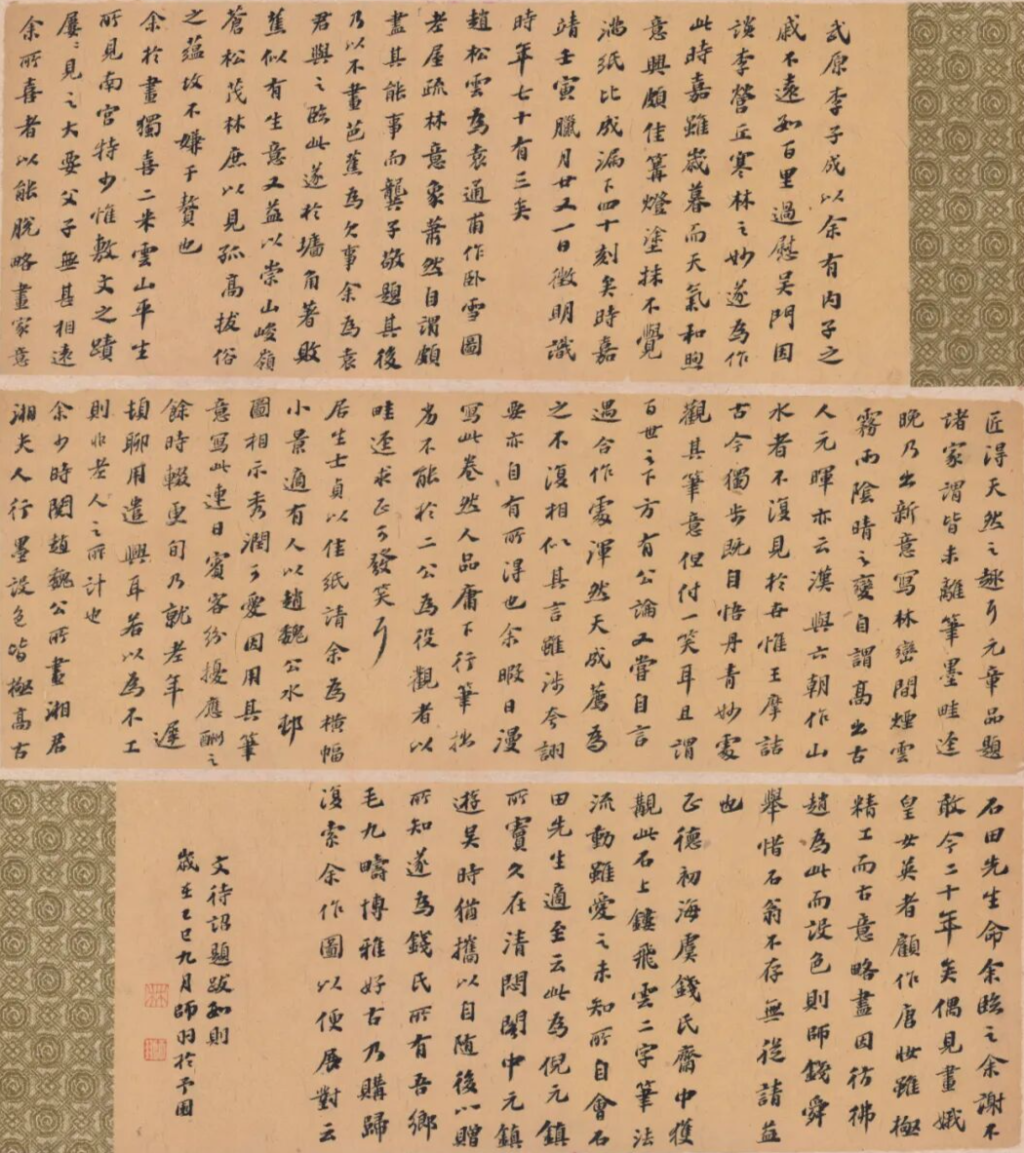 武原李子成以余有内子之
戚不遠數百里過慰吳門因
談李營丘寒林之妙遂為作
此時嘉雖歲暮而天氣和煦
意興頗佳篝燈塗抹不覺
滿紙比成漏下四十刻矣時嘉
靖壬寅臘月廿又一日徵明識
時年七十有三矣
趙松雪為袁通甫作卧雪圖
老屋疏林意象蕭然自謂頗
盡其能事而龔子敬題其後
乃以不畫芭蕉為欠事余為袁
君與之臨此遂於墻角著敗
蕉似有生意又益以崇山峻嶺
蒼松茂林庶以見孤高拔俗
之蘊故不嫌于贅也
余於畫獨喜二米雲山平生
所見南宮特少惟敷文之蹟
屢屢見之大要父子無甚相遠
余所喜者以能脫略畫家意
匠得天然之趣耳元章品題
諸家謂皆未離筆墨畦逕
晚乃出新意寫林巒間煙雲
霧雨陰晴之變自謂高出古
人元暉亦云漢與六朝作山
水者不復見於世惟王摩詰
古今獨步既自悟丹青妙處
觀其筆意但付一笑耳且謂
百世之下方有公論又嘗自言
遇合作處渾然天成薦為
之不復相似其言雖涉夸詡
要亦自有所得也余暇日漫
寫此卷然人品庸下行筆拙
劣不能於二公為役觀者以
畦逕求正可發笑耳
居生士貞以佳紙請余為橫幅
小景適有人以趙魏公水邨
圖相示秀潤可愛因用其筆
意寫此連日賓客紛擾應酬之
餘時輟更旬乃就老年遲
頓聊用遣興耳若以為不工
則非老人之所計也
余少時閱趙魏公所畫湘君
湘夫人行墨設色皆極高古
石田先生命余臨之余謝不
敢今二十年矣偶見畫娥
皇女英者顧作唐妝雖極
精工而古意略盡因彷彿
趙為此而設色則師錢舜
舉惜石翁不存無從請益
也
正德初海虞錢氏齋中獲
觀此石上鏤飛雲二字筆法
流動雖愛之未知所自會石
田先生適至云此為倪元鎮
所寶久在清閟閣中元鎮
遊吳時猶攜以自隨後以贈
所知遂為錢氏所有吾鄉
毛九疇博雅好古乃購歸
復索余作圖以便展對云
文待詔題跋數則
歲在己巳九月師羽於予園